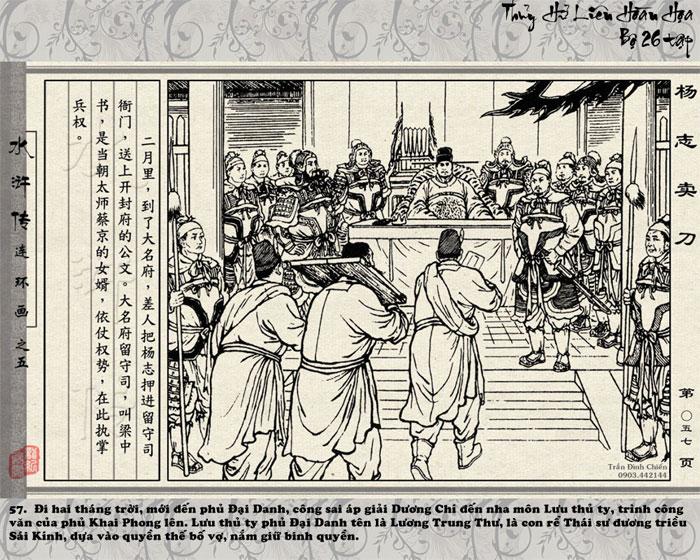 Thủy Hử Liên Hoàn Họa
Bộ 26 tập
杨志卖刀
二月里，到了大名府，差人把杨志押进留守司
衙门，送上开封府的公文。大名府留守司，叫梁中
书，是当朝太师蔡京的女婿，依仗权势，在此执掌
兵权。
水浒传连环画之五
第〇五七页
Trần Đình Chiến
0903.442144
57. Đi hai tháng trời, mới đến phủ Đại Danh, công sai áp giải Dương Chí đến nha môn Lưu thủ ty, trình công
văn của phủ Khai Phong lên. Lưu thủ ty phủ Đại Danh tên là Lương Trung Thư, là con rể Thái sư đương triều
Sái Kinh, dựa vào quyền thế bố vợ, nắm giữ binh quyền.